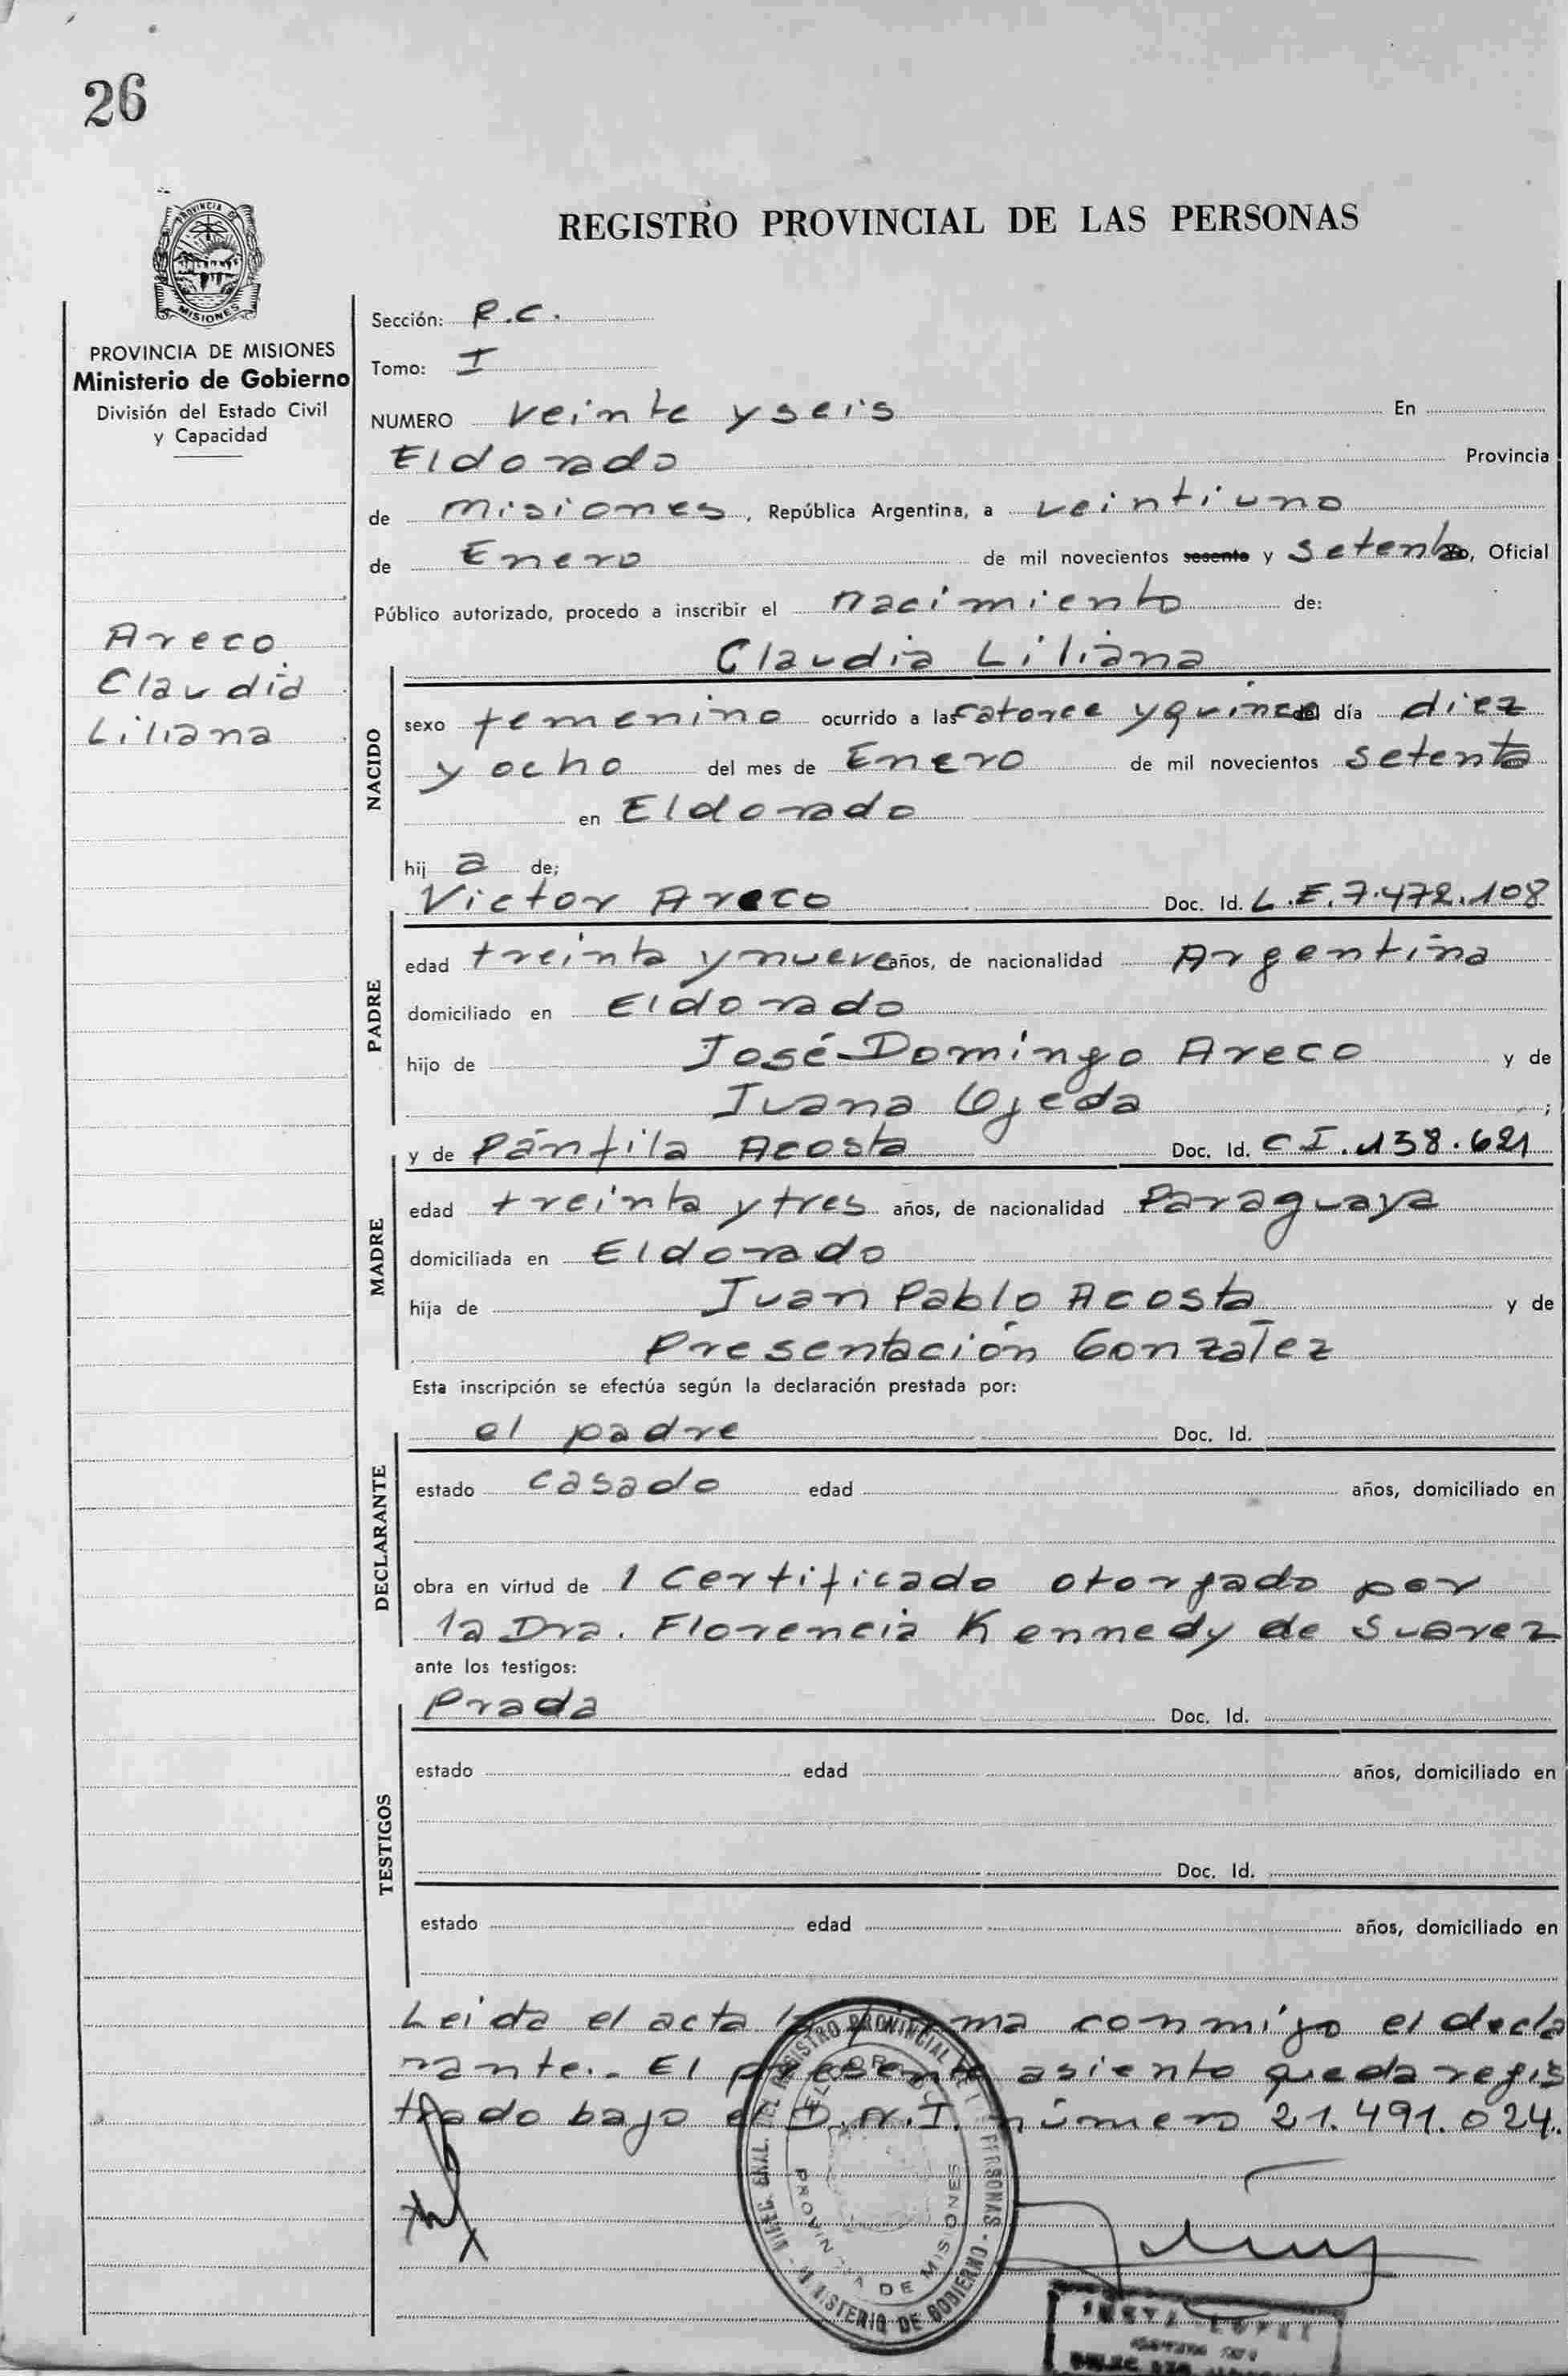 26
REGISTRO PROVINCIAL DE LAS PERSONAS
PROVINCIA DE
MISIONES
PROVINCIA DE MISIONES
Ministerio de Gobierno
División del Estado Civil
y Capacidad
Areco
Claudia
Liliana
Sección: R.C.
Tomo: I
NUMERO veinte y seis En
Eldorado Provincia
de misiones, República Argentina, a veintiuno
de Enero de mil novecientos sesenta y setenta, Oficial
Público autorizado, procedo a inscribir el nacimiento de:
Claudia Liliana
NACIDO
sexo femenino ocurrido a las catorce y quince del día diez
y ocho del mes de Enero de mil novecientos setenta
en Eldorado
hij a de;
Victor Areco Doc. Id. L.E. 7.472.108
PADRE
edad treinta y nueve años, de nacionalidad Argentina
domiciliado en Eldorado
hijo de José Domingo Areco y de
Juana Ojeda ;
y de Pánfila Acosta Doc. Id. C I. 138.621
MADRE
edad treinta y tres años, de nacionalidad Paraguaya
domiciliada en Eldorado
hija de Juan Pablo Acosta y de
Presentación Gonzalez
Esta inscripción se efectúa según la declaración prestada por:
el padre Doc. Id.
DECLARANTE
estado casado edad años, domiciliado en
obra en virtud de 1 Certificado otorgado por
la Dra. Florencia Kennedy de Suarez
ante los testigos:
Prada Doc. Id.
TESTIGOS
estado edad años, domiciliado en
Doc. Id.
estado edad años, domiciliado en
Leida el acta la firma conmigo el decla
rante.- El presente asiento queda regis
trado bajo el D.N.I. número 21.491.024.
DIREC. GRAL. DEL REGISTRO PROVINCIAL DE PERSONAS - MINISTERIO DE GOBIERNO -
ELDORADO
PROVINCIA DE MISIONES
LOPEZ